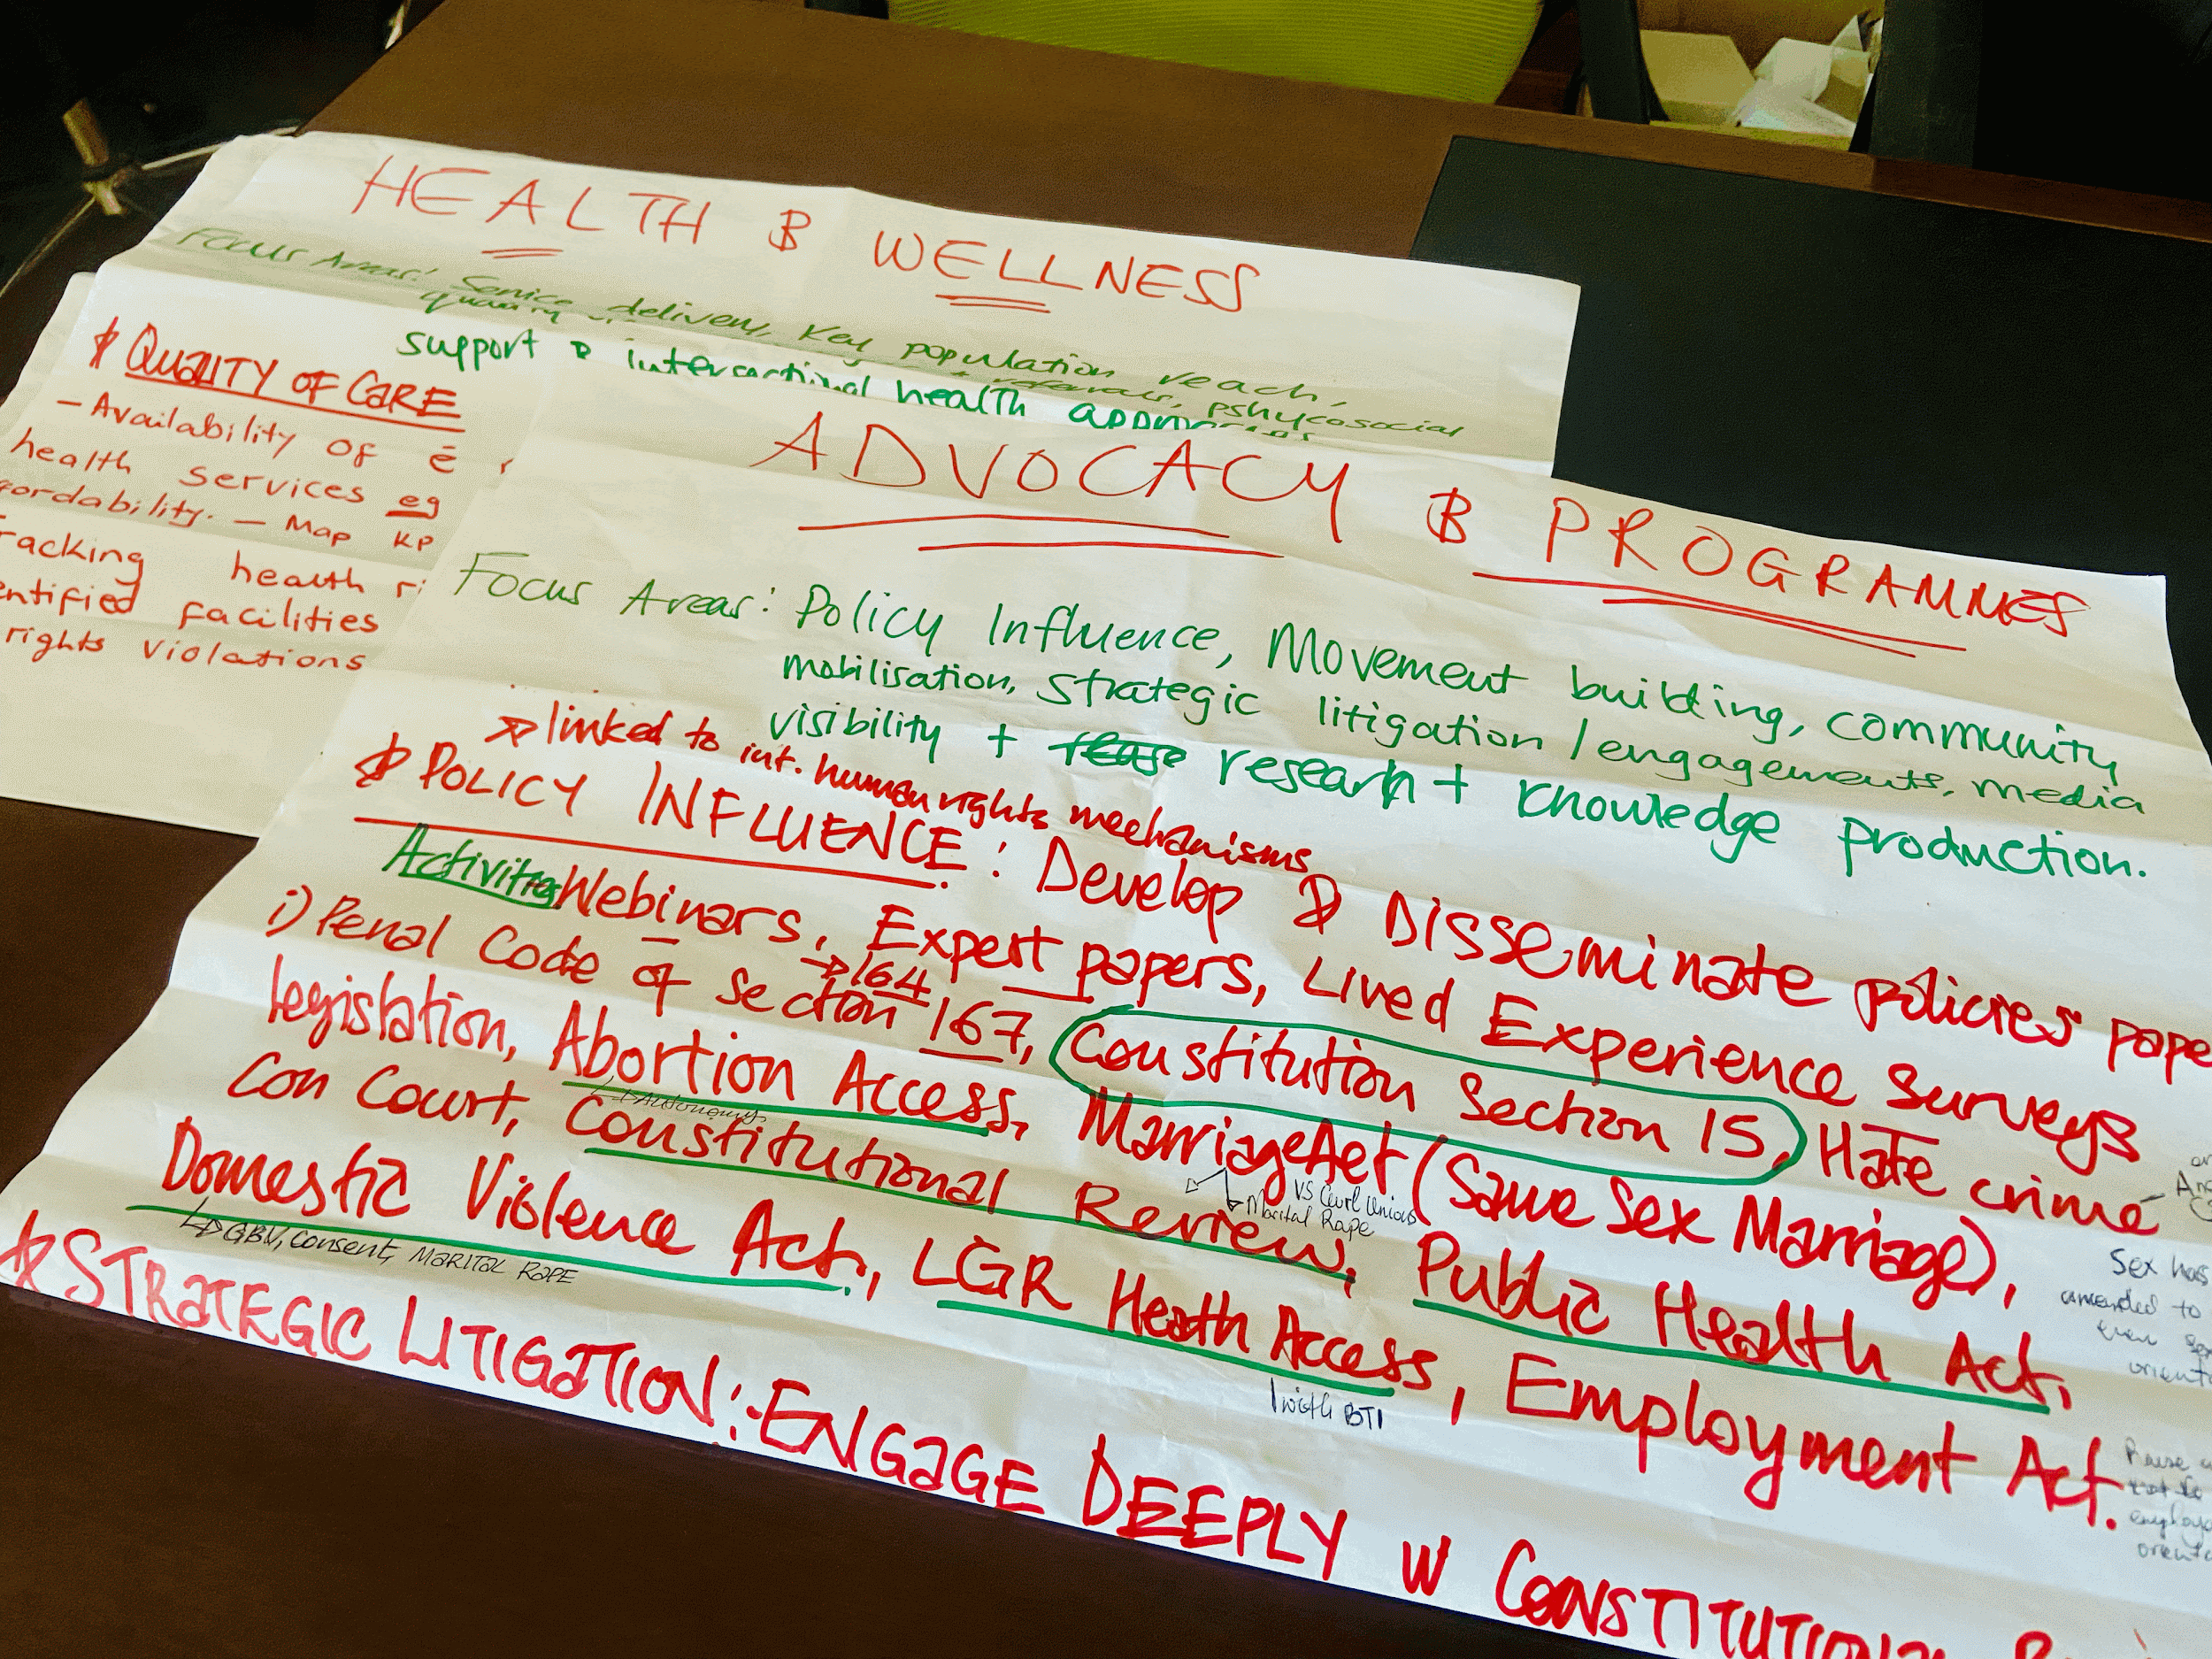 HEALTH & WELLNESS
Focus Areas: Service delivery, Key population reach,
referrals, pshycosocial
support & intersectional health
* QUALITY OF CARE
- Availability of
health services eg
- Map KP
health
facilities
rights violations
ADVOCACY & PROGRAMMES
Focus Areas: Policy Influence, Movement building, community
mobilisation, strategic litigation / engagements, media
visibility + research + knowledge production.
linked to int. human rights mechanisms
* POLICY INFLUENCE: Develop & Disseminate policies
Activities Webinars, Expert papers, Lived Experience Surveys
i) Penal Code of section 167, Constitution Section 15, Hate crime
→ 164
legislation, Abortion Access, Marriage Act (Same Sex Marriage),
↳ Autonomy
VS Civil Unions
Marital Rape
Con Court, Constitutional Review, Public Health Act,
Domestic Violence Act, LGR Heath Access, Employment Act.
↳ GBV, Consent, MARITAL RAPE
with BTI
Sex has
amended to
* STRATEGIC LITIGATION: ENGAGE DEEPLY W